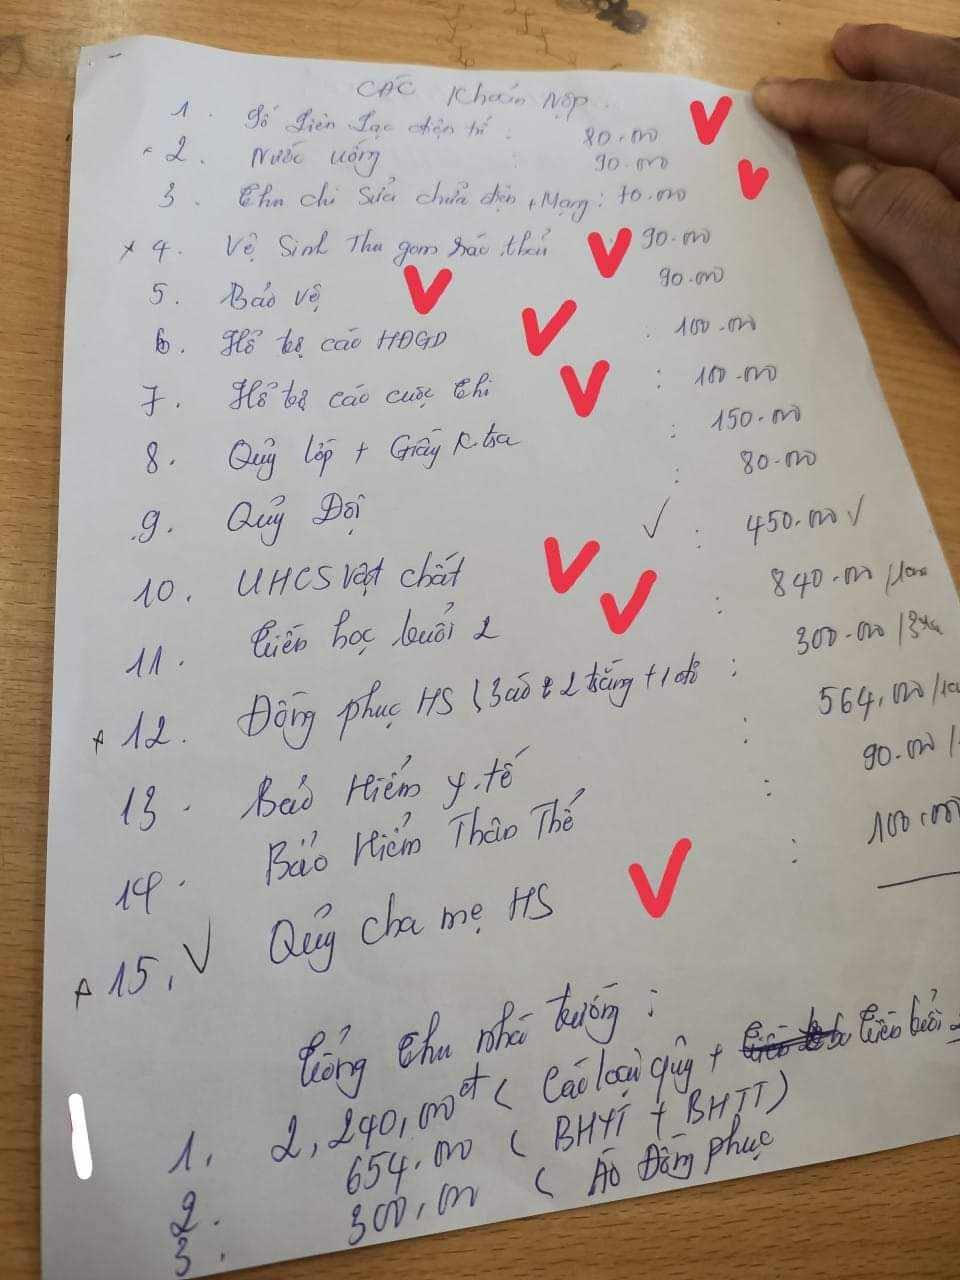 CÁC Khoản Nộp
1. Sổ Liên Lạc điện tử : 80.000
2. Nước uống : 90.000
3. Thu chi Sửa chửa điện + Mạng : 70.000
x 4. Vệ Sinh Thu gom rác thải : 90.000
5. Bảo vệ 90.000
6. Hổ trợ các HĐGD : 100.000
7. Hổ trợ các cuộc thi : 100.000
8. Quỷ lớp + Giấy K.tra : 150.000
9. Quỷ Đội : 80.000
10. UHCS vật chất : 450.000
11. Tiền học buổi 2 : 840.000 /
12. Đồng phục HS (3 áo 2 trắng + 1 đỏ : 300.000 /
13. Bảo Hiểm y tế : 564,000 /
14. Bảo Hiểm Thân Thể : 90.000 /
15. Quỷ cha mẹ HS : 100.000
Tổng thu nhà trường :
1. 2,240,000đ ( Các loại quỹ + tiền buổi 2
2. 654.000 ( BHYT + BHTT)
3. 300,000 ( Áo Đồng phục